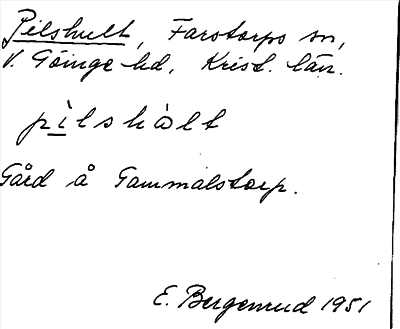 Pilshult, Farstorps sn,
V. Göinge hd, Krist. län.
pìlshàlt
Gård å Gammalstorp.
E. Bergenrud 1951